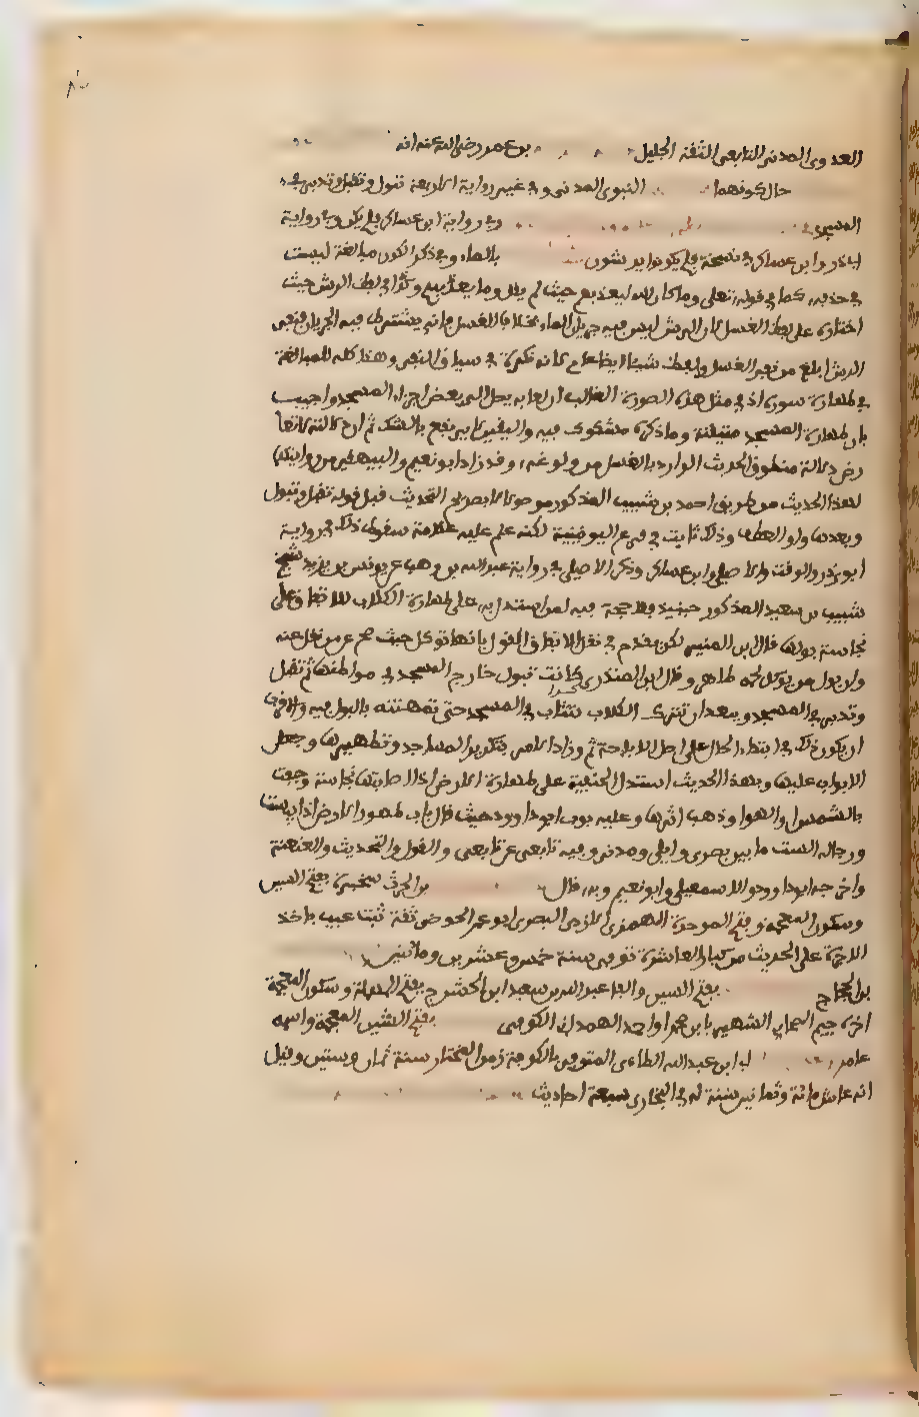 العدوى المدنى التابعى الثقة الجليل بن عمر رضى الله عنه انه
حال كونهما النبوى المدنى وفى غير رواية الاربعة تبول وتقبل وتدبر فى
المسجد وفى رواية ابن عساكر فلم يكن وفى رواية
ابى ذر وابن عساكر فى نسخة فلم يكونوا يرشون بالماء وفى ذكر الكون مبالغة ليست
فى حذفه كما فى قوله تعالى وما كان الله ليعذبهم حيث لم يقل وما يعذبهم وكذا فى لفظ الرش حيث
اختاره على لفظ الغسل لان الرش ليس فيه جريان الماء بخلاف الغسل فانه يشترط فيه الجريان فنفى
الرش ابلغ من نفى الغسل ولفظ شيئا ايضا عام لانه نكرة فى سياق النفى وهذا كله للمبالغة
فى طهارة سوره اذ فى مثل هذه الصورة الغالب ان لعابه يصل الى بعض اجزاء المسجد واجيب
بان طهارة المسجد متيقنة وما ذكره مشكوك فيه واليقين لا يرتفع بالشك ثم ان دلالته لا تعا
رض دلالة منطوق الحديث الوارد بالغسل من ولوغه وقد زاد ابو نعيم والبيهقى من روايتهما
لهذا الحديث من طريق احمد بن شبيب المذكور موصولا بصريح التحديث قبل قوله تقبل وتبول
وبعدها واو العطف وذلك ثابت فى فرع اليونينية لكنه علم عليه علامة سقوط ذلك فى رواية
ابوى ذر والوقت والاصيلى وابن عساكر وذكر الاصيلى فى رواية عبد الله بن وهب عن يونس بن يزيد شيخ
شبيب بن سعيد المذكور حينئذ فلا حجة فيه لمن استدل به على طهارة الكلاب للاتفاق على
نجاسة بولها قال ابن المنير لكن يقدح فى نقل الاتفاق القول بانها توكل حيث صح عن من نقل عنه
وان بول من يوكل لحمه طاهر وقال ابن المنذرى كانت تبول خارج المسجد فى مواطنها ثم تقبل
وتدبر فى المسجد ويبعد ان تترك الكلاب تنتاب فى المسجد حتى تمتهنه بالبول فيه والاقرب
ان يكون ذلك فى ابتداء الحال على اصل الاباحة ثم ورد الامر بتكريم المساجد وتطهيرها وجعل
الابواب عليها وبهذا الحديث استدل الحنفية على طهارة الارض اذا اصابتها نجاسة وجفت
بالشمس والهوا وذهب اثرها وعليه بوب ابو داوود حيث قال باب طهور الارض اذا يبست
ورجاله الست ما بين بصرى وايلى ومدنى وفيه تابعى عن تابعى والقول والتحديث والعنعنة
واخرجه ابو داوود والاسمعيلى وابو نعيم وبه قال بن الحرث سخبرة بفتح السين
وسكون المعجمة وفتح الموحدة النمرى الازدى البصرى ابو عمر الحوضى ثقة ثبت عيب باخذ
الاجرة على الحديث من كبار العاشرة توفى سنة خمس وعشرين ومائتين
بن الحجاج بفتح السين والفا عبد الله بن سعيد ابن الحشرج بفتح المهملة وسكون المعجمة
اخره جيم الشهير بابن واحد الهمدانى الكوفى بفتح الشين المعجمة واسمه
عامر ابن عبد الله الطاءى المتوفى بالكوفة زمن المختار سنة ثمان وستين وقيل
انه عاش مائة وثمانين سنة له فى البخارى سبعة احاديث